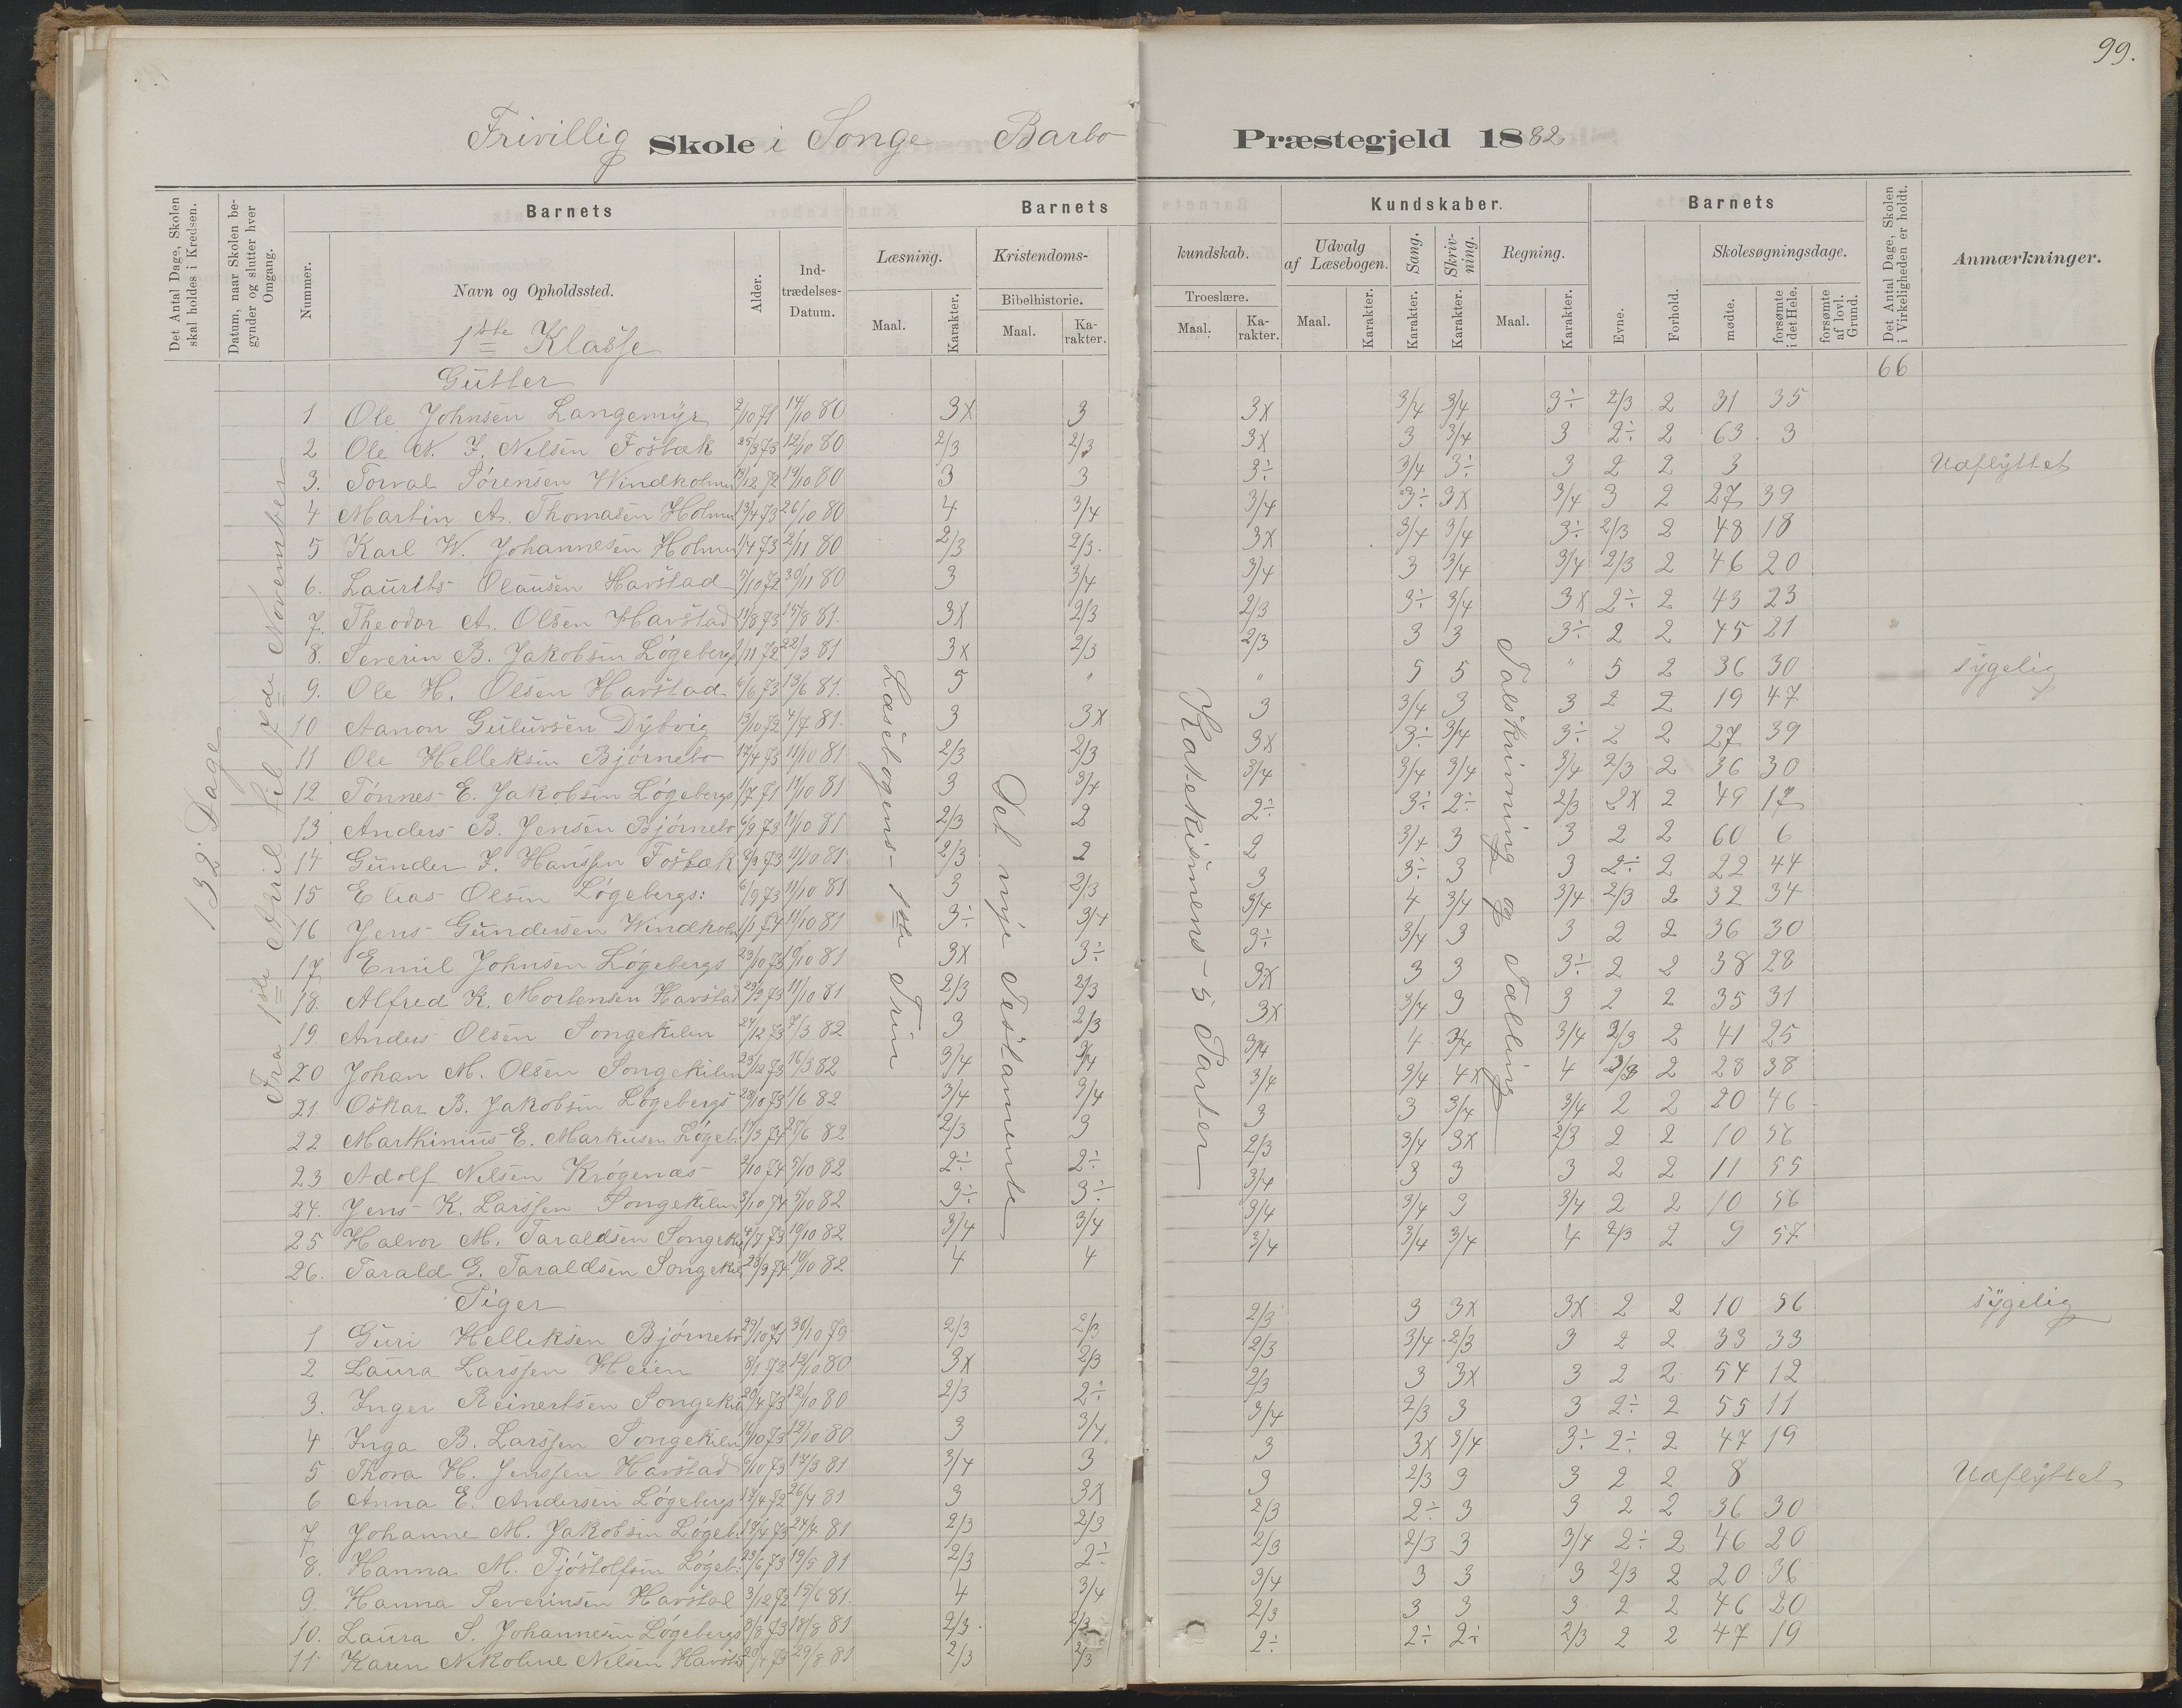 99.
Frivillig Skole i Songe Barbo Præstegjeld 1882
Det Antal Dage, Skolen skal holdes i Kredsen.
Datum, naar Skolen begynder og slutter hver Omgang.
Nummer.
Barnets
Navn og Opholdssted.
Alder.
Indtrædelses-Datum.
Barnets
Læsning.
Maal.
Karakter.
Kristendoms-
Bibelhistorie.
Maal.
Karakter.
kundskab.
Troeslære.
Maal.
Karakter.
Kundskaber.
Udvalg af Læsebogen.
Maal.
Karakter.
Sang.
Karakter.
Skrivning.
Karakter.
Regning.
Maal.
Karakter.
Barnets
Evne.
Forhold.
Skolesøgningsdage.
mødte.
forsømte i det Hele.
forsømte af lovl. Grund.
Det Antal Dage, Skolen i Virkeligheden er holdt.
Anmærkninger.
1ste Klasse
132 Dage
Fra 1ste April til 7de November
Læsebogens 1ste Trin
Det nye Testamente
Katekismens 5 Parter
Talskrivning og Tælling
Gutter 66
1 Ole Johnsen Langemyr 2/10 71 14/10 80 3x 3 3x 3/4 3/4 3÷ 2/3 2 31 35
2 Ole N. F. Nilsen Fosbæk 25/3 73 12/10 80 2/3 2/3 3x 3 3/4 3 2÷ 2 63 3
3. Torval Sørensen Windholmen 19/10 80 3 3 3÷ 3/4 3÷ 3 2 2 3 Udflyttet
4 Martin A. Thomasen Holmen 13/4 73 26/10 80 4 3/4 3/4 3÷ 3x 3/4 3 2 27 39
5 Karl W. Johannesen Holmen 1/4 73 2/11 80 2/3 2/3. 3x 3/4 3/4 3÷ 2/3 2 48 18
6. Laurits Olausen Havstad 30/11 80 3 3/4 3/4 3 3/4 3/4 2/3 2 46 20
7. Theodor A. Olsen Havstad 11/8 73 15/8 81. 3x 2/3 2/3 3÷ 3/4 3x 2÷ 2 43 23
8. Severin B. Jakobsen Løgebergs 1/11 72 22/3 81 3x 2/3 2/3 3 3 3÷ 2 2 45 21
9. Ole H. Olsen Havstad 6/6 73 13/6 81. 5 " " 5 5 " 5 2 36 30 sygelig
10 Aanon Gulufsen Dybvig 13/10 72 4/7 81. 3 3x 3 3/4 3 3 2 2 19 47
11 Ole Helleksen Bjørnebo 17/4 73 11/10 81 2/3 2/3 3x 3÷ 3/4 3÷ 2 2 27 39
12 Tønnes E. Jakobsen Løgebergs 1/7 71 11/10 81 3 3/4 3/4 3/4 3/4 3/4 2/3 2 36 30
13 Anders B. Jensen Bjørnebo 6/9 73 11/10 81 2/3 2 2÷ 3÷ 2÷ 2/3 2x 2 49 17
14 Gunder F. Hanssen Fosbæk 11/10 81 2/3 2 2 3/4 3 3 2 2 60 6
15 Elias Olsen Løgebergs: 6/9 73 11/10 81 3 2/3 3 3÷ 3 3 2÷ 2 22 44
16 Jens Gundersen Windholm 11/10 81 3÷ 3/4 3/4 4 3/4 3/4 2/3 2 32 34
17 Emil Johnsen Løgebergs 23/10 73 10/10 81 3x 3÷ 3÷ 3/4 3 3 2 2 36 30
18. Alfred K. Mortensen Havstad 29/9 73 11/10 81 2/3 2/3 3x 3 3 3÷ 2 2 38 28
19 Anders Olsen Songekilen 24/12 73 7/3 82 3 2/3 3x 3/4 3 3 2 2 35 31
20 Johan M. Olsen Songekilen 16/3 82 3/4 3/4 3/4 4 3/4 3/4 2/3 2 41 25
21 Oskar B. Jakobsen Løgebergs 28/10 73 1/6 82 3/4 3/4 3/4 3/4 4x 4 2 28 38
22 Marthinius E. Markusen Løgeb. 27/6 82 2/3 3 3 3 3/4 3/4 2 2 20 46
23 Adolf Nilsen Krøgenæs 2/10 74 5/10 82 2÷ 2÷ 2/3 3/4 3x 2/3 2 2 10 56
24. Jens K. Larssen Songekilen 3/10 74 5/10 82 3÷ 3÷ 3/4 3 3 3 2 2 11 55
25 Halvor M. Taraldsen Songeki 4/7 73 10/10 82 3/4 3/4 3/4 3/4 3 3/4 2 2 10 56
26. Tarald G. Taraldsen Songeki 28/9 74 10/10 82 4 4 3/4 3/4 3/4 4 2/3 2 9 57
Piger
1 Guri Helleksen Bjørnebo 29/10 71 30/10 79 2/3 2/3 2/3 3 3x 3x 2 2 10 56 sygelig
2 Laura Larssen Heien 8/1 72 12/10 80 3x 2/3 2/3 3/4 2/3 3 2 2 33 33
3. Inger Reinertsen Songekil 20/4 73 12/10 80 2/3 2÷ 2/3 3 3x 3 2 2 54 12
4 Inga B. Larssen Songekilen 16/10 73 12/10 80 3 3/4 3/4 2/3 3 3 2÷ 2 55 11
5 Thora H. Jenssen Havstad 6/10 73 17/3 81 3/4 3 3 3x 3/4 3÷ 2÷ 2 47 19
6 Anna E. Andersen Løgebergs 17/4 72 26/4 81 3 3x 3 2/3 3 3 2 2 8 Udflyttet
7 Johanne M. Jakobsen Løgeb. 24/4 81 2/3 2/3 2/3 2÷ 3 3 2 2 36 30
8. Hanna M. Tjøstolfsen Løgeb. 23/6 73 19/5 81 2/3 2÷ 2/3 2/3 3 3/4 2÷ 2 46 20
9. Hanna Severinsen Havstad 3/12 72 15/6 81. 4 3/4 3/4 3 3 3 2/3 2 20 36
10. Laura S. Johannesen Løgebergs 18/8 81 2/3. 2/3 2/3 3 3 3 2 2 46 20
11 Karen Nikoline Nilsen Havstad 29/8 81 2/3 2/3 2÷ 2÷ 2÷ 2/3 2 2 47 19